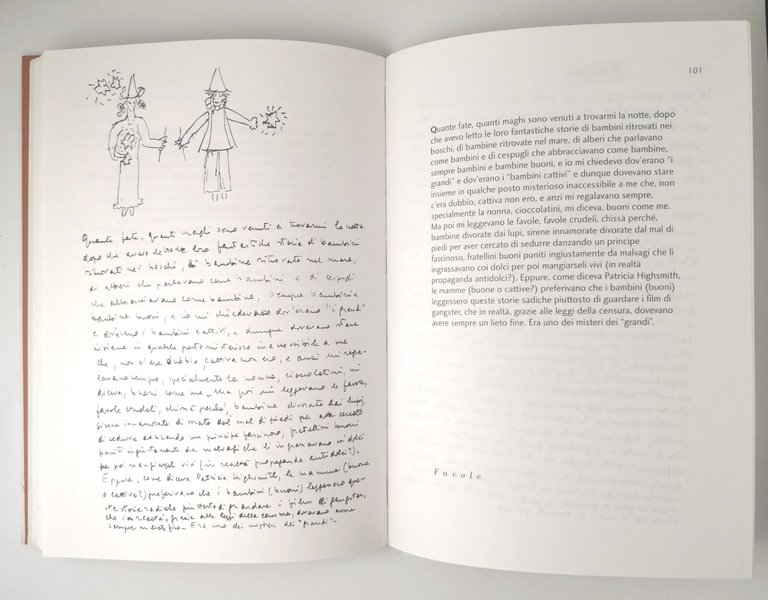 Quante fate, quanti maghi sono venuti a trovarmi la notte
dopo che avevo letto le loro fantastiche storie di bambini
ritrovati nei boschi, di bambine ritrovate nel mare,
di alberi che parlavano come bambini e di cespugli
che abbracciavano come bambine, sempre bambini e
bambine buoni, e io mi chiedevo dov'erano "i grandi"
e dov'erano i bambini cattivi, e dunque dovevano stare
insieme in qualche posto misterioso inaccessibile a me
che, non c'era dubbio, cattiva non ero, e anzi mi rega-
lavano sempre, specialmente la nonna, cioccolatini, mi
diceva, buoni come me. Ma poi mi leggevano le favole,
favole crudeli, chissà perché, bambine divorate dai lupi,
sirene innamorate divorate dal mal di piedi per aver cercato
di sedurre danzando un principe fascinoso, fratellini buoni
puniti ingiustamente da malvagi che li ingrassavano coi dolci
per poi mangiarseli vivi (in realtà propaganda antidolci?).
Eppure, come diceva Patricia Highsmith, le mamme (buone
o cattive?) preferivano che i bambini (buoni) leggessero que-
ste storie sadiche piuttosto di guardare i film di gangster,
che in realtà, grazie alle leggi della censura, dovevano avere
sempre un lieto fine. Era uno dei misteri dei "grandi".
101
Quante fate, quanti maghi sono venuti a trovarmi la notte, dopo
che avevo letto le loro fantastiche storie di bambini ritrovati nei
boschi, di bambine ritrovate nel mare, di alberi che parlavano
come bambini e di cespugli che abbracciavano come bambine,
sempre bambini e bambine buoni, e io mi chiedevo dov'erano "i
grandi" e dov'erano i "bambini cattivi" e dunque dovevano stare
insieme in qualche posto misterioso inaccessibile a me che, non
c'era dubbio, cattiva non ero, e anzi mi regalavano sempre,
specialmente la nonna, cioccolatini, mi diceva, buoni come me.
Ma poi mi leggevano le favole, favole crudeli, chissà perché,
bambine divorate dai lupi, sirene innamorate divorate dal mal di
piedi per aver cercato di sedurre danzando un principe
fascinoso, fratellini buoni puniti ingiustamente da malvagi che li
ingrassavano coi dolci per poi mangiarseli vivi (in realtà
propaganda antidolci?). Eppure, come diceva Patricia Highsmith,
le mamme (buone o cattive?) preferivano che i bambini (buoni)
leggessero queste storie sadiche piuttosto di guardare i film di
gangster, che in realtà, grazie alle leggi della censura, dovevano
avere sempre un lieto fine. Era uno dei misteri dei "grandi".
Favole